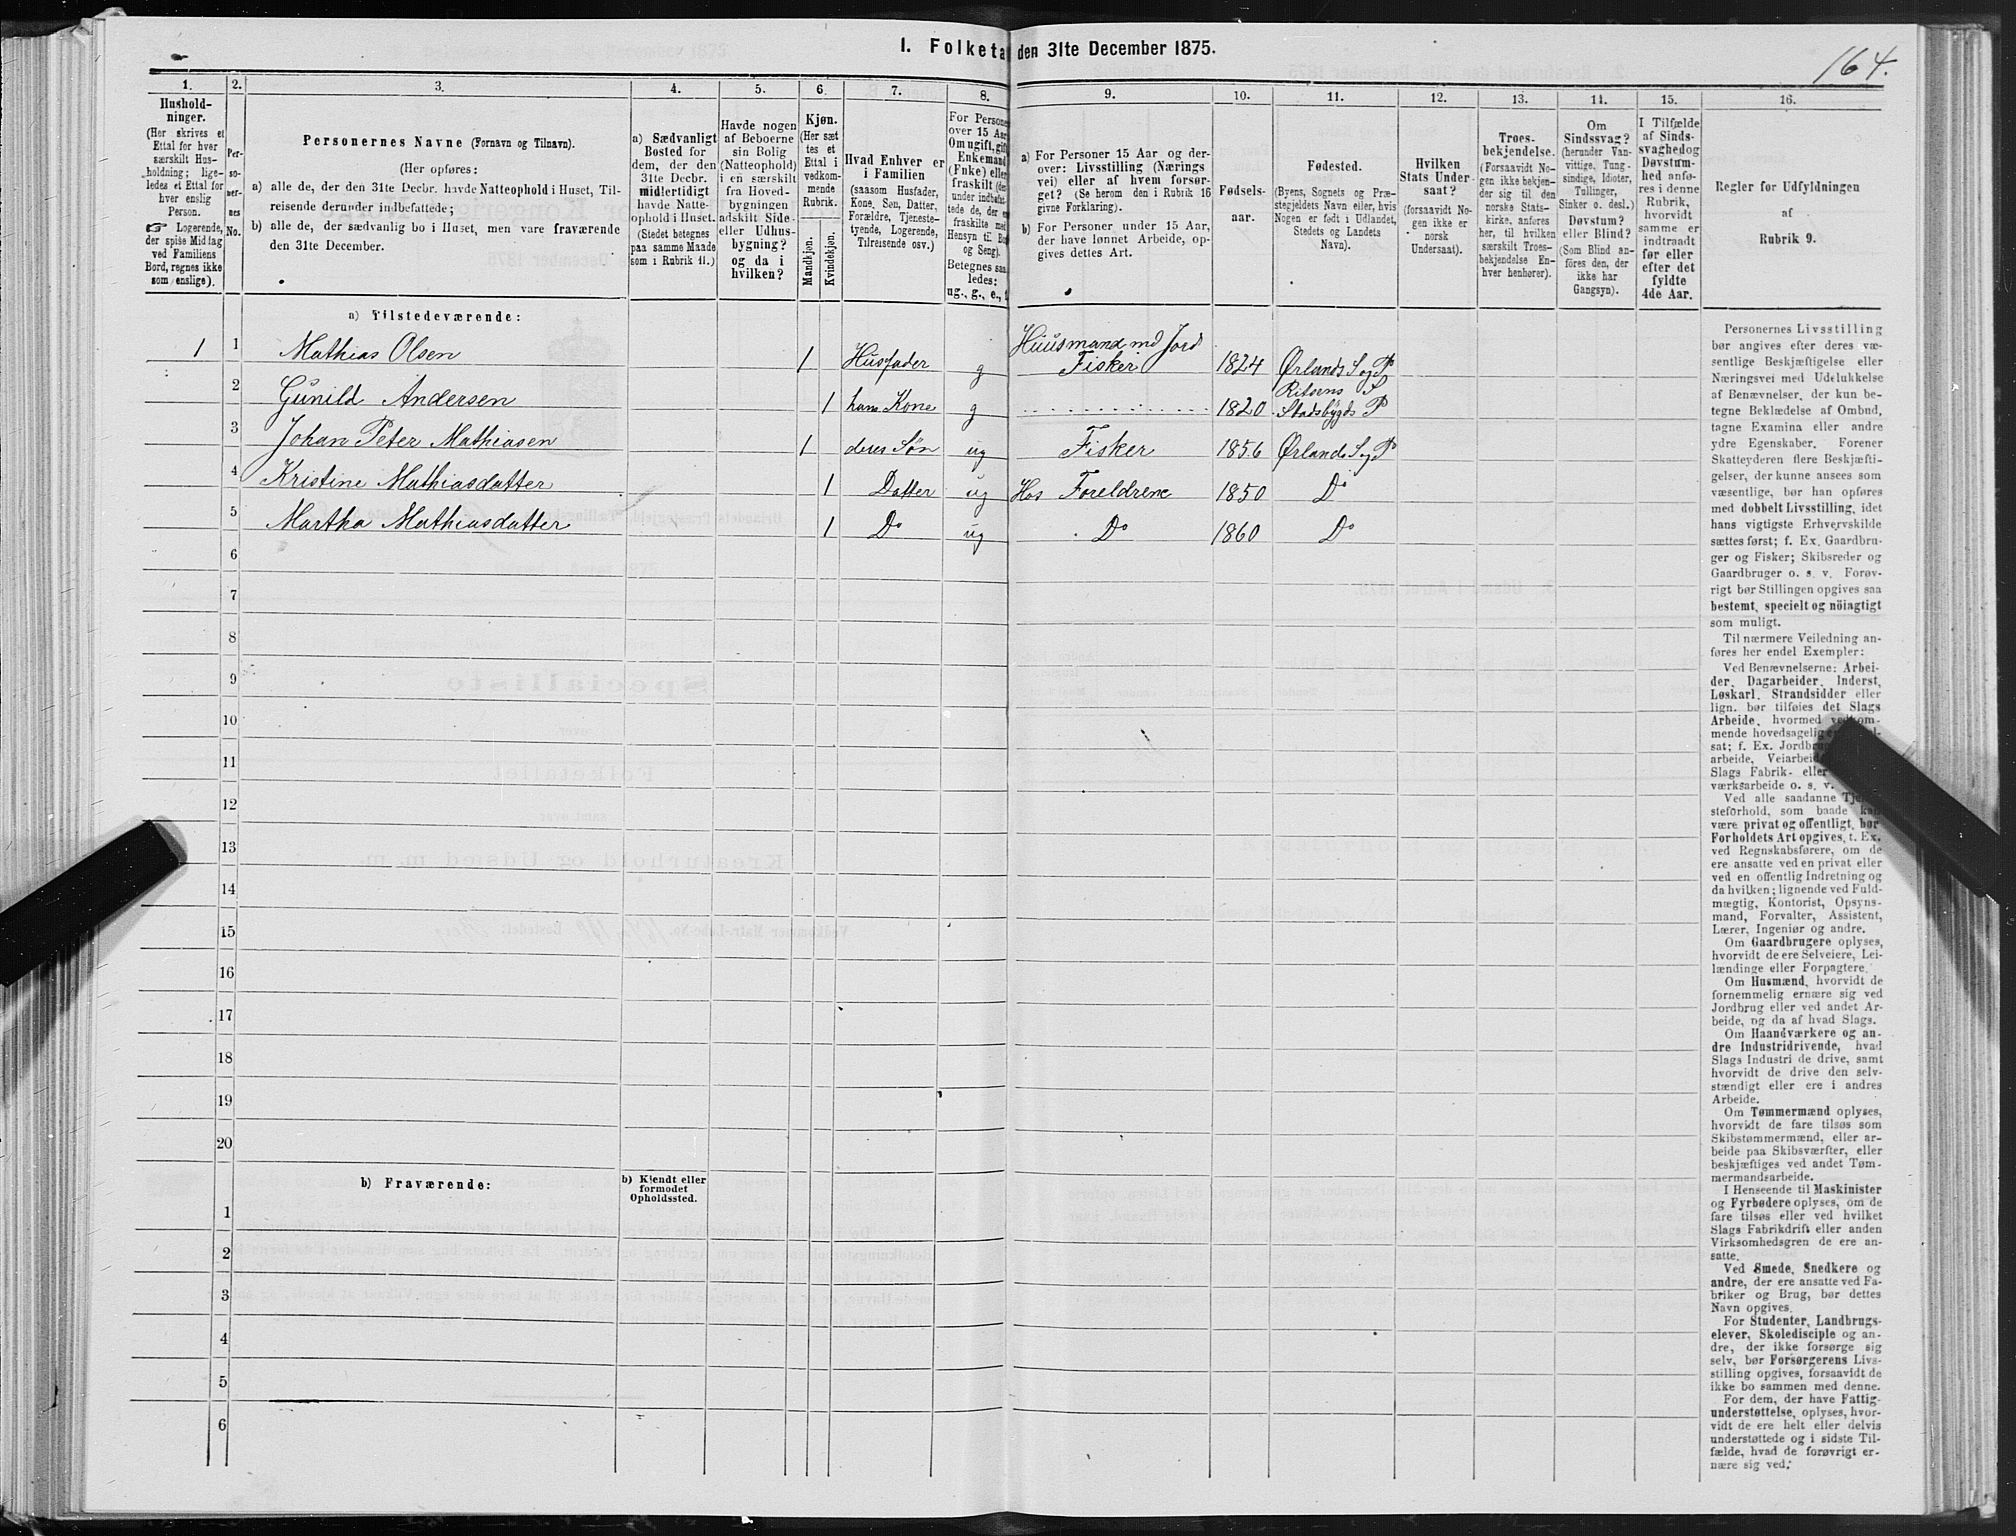 I. Folketa den 31te December 1875.
164.
1.
2.
3.
4.
5.
6.
7.
8.
9.
10.
11.
12.
13.
14.
15.
16.
Hushold-
ninger.
(Her skrives et
Ettal for hver
særskilt Hus-
holdning; lige-
ledes et Ettal for
hver enslig
Person.
Logerende,
der spise Middag
ved Familiens
Bord, regnes ikke
som enslige).
Per-
so-
ner-
nes
No.
Personernes Navne (Fornavn og Tilnavn).
(Her opføres:
a) alle de, der den 31te Decbr. havde Natteophold i Huset, Til-
reisende derunder indbefattede;
b) alle de, der sædvanlig bo i Huset, men vare fraværende
den 31te December.
a) Sædvanligt
Bosted for
dem, der den
31te Decbr.
midlertidigt
havde Natte-
ophold i Huset.
(Stedet betegnes
paa samme Maade
som i Rubrik 11.)
Havde nogen
af Beboerne
sin Bolig
(Natteophold)
i en særskilt
fra Hoved-
bygningen
adskilt Side-
eller Udhus-
bygning?
og da i
hvilken?
Kjøn.
(Her sæt
tes et
Ettal i
vedkom-
mende
Rubrik.
Mandkjøn.
Kvindekjøn.
Hvad Enhver er
i Familien
(saasom Husfader,
Kone, Søn, Datter,
Forældre, Tjeneste-
tyende, Logerende,
Tilreisende osv.)
For Persone
over 15 Aar
Om ugift, gift
Enkemand
(Enke) eller
fraskilt (de
under indbefat-
tede de, der er
fraskilte med
Hensyn til Bo
og Seng).
Betegnes saa
ledes:
ug., g., e.,
a) For Personer 15 Aar og der-
over: Livsstilling (Nærings
vei) eller af hvem forsør-
get? (Se herom den i Rubrik 16
givne Forklaring).
b) For Personer under 15 Aar,
der have lønnet Arbeide, op-
gives dettes Art.
Fødsels-
aar.
Fødested.
(Byens, Sognets og Præ-
stegjeldets Navn eller, hvis
Nogen er født i Udlandet,
Stedets og Landets
Navn).
Hvilken
Stats Under-
saat?
(forsaavidt No-
gen ikke er
norsk
Undersaat).
Troes-
bekjendelse.
(Forsaavidt No-
gen ikke bekjen-
der sig til den
norske Stats-
kirke, anføres
her, til hvilken
særskilt Troes-
bekjendelse En-
hver henhører).
Om
Sindssvag?
(herunder Van-
vittige, Tung-
sindige, Idioter,
Tullinger,
Sinker o. desl.)
Døvstum?
eller Blind?
(Som Blind an-
føres den, der
ikke har
Gangsyn).
I Tilfælde
af Sinds-
svaghed og
Døvstum-
hed anfø-
res i denne
Rubrik,
hvorvidt
samme er
indtraadt
før eller
efter det
fyldte
4de Aar.
Regler for Udfyldningen
af
Rubrik 9.
a) Tilstedeværende:
1 1 Mathias Olsen 1 Husfader g Huusmand md Jord Fisker 1824 Ørlands S og P
2 Gunild Andersen 1 hans Kone g 1820 Ritsens S Stadsbygds P
3 Johan Peter Mathiasen 1 deres Søn ug Fisker 1856 Ørlands S og P
4 Kristine Mathiasdatter 1 Datter ug Hos Foreldrene 1850 Do
5 Martha Mathiasdatter 1 Do ug Do 1860 Do
6
7
8
9
10
11
12
13
14
15
16
17
18
19
20
b) Fraværende:
b) Kjendt eller
formodet
Opholdssted.
1
2
3
4
5
6
Personernes Livsstilling
bør angives efter deres væ-
sentlige Beskjæftigelse eller
Næringsvei med Udelukkelse
af Benævnelser, der kun be-
tegne Beklædelse af Ombud,
tagne Examina eller andre
ydre Egenskaber. Forener
Skatteyderen flere Beskjæfti-
gelser, der kunne ansees som
væsentlige, bør han opføres
med dobbelt Livsstilling, idet
hans vigtigste Erhvervskilde
sættes først; f. Ex. Gaardbru-
ger og Fisker; Skibsreder og
Gaardbruger o. s. v. Forøv-
rigt bør Stillingen opgives saa
bestemt, specielt og nöiagtigt
som muligt.
Til nærmere Veiledning an-
føres her endel Exempler:
Ved Benævnelserne: Arbei-
der, Dagarbeider, Inderst,
Løskarl, Strandsidder eller
lign. bør tilføies det Slags
Arbeide, hvormed vedkom-
mende hovedsagelig
sat; f. Ex. Jordbr
arbeide, Veiarbeid
Slags Fabrik- eller
værksarbeide o. s. v.
Ved alle saadanne Tjene-
steforhold, som baade kan
være privat og offentligt, bør
Forholdets Art opgives, t. Ex.
ved Regnskabsførere, om de
ere ansatte ved en privat eller
ved en offentlig Indretning og
da hvilken; lignende ved Fuld-
mægtig, Kontorist, Opsyns-
mand, Forvalter, Assistent,
Lærer, Ingeniør og andre.
Om Gaardbrugere oplyses,
hvorvidt de ere Selveiere, Lei-
lændinge eller Forpagtere.
Om Husmænd, hvorvidt de
fornemmelig ernære sig ved
Jordbrug eller ved andet Ar-
beide, og da af hvad Slags.
Om Haandværkere og an-
dre Industridrivende, hvad
Slags Industri de drive, samt
hvorvidt de drive den selv-
stændigt eller ere i andres
Arbeide.
Om Tømmermænd oplyses,
hvorvidt de fare tilsøs som
Skibstømmermænd, eller ar-
beide paa Skibsværfter, eller
beskjæftiges ved andet Tøm-
mermandsarbeide.
I Henseende til Maskinister
og Fyrbødere oplyses, om de
fare tilsøs eller ved hvilket
Slags Fabrikdrift eller anden
Virksomhedsgren de ere an-
satte.
Ved Smede, Snedkere og
andre, der ere ansatte ved Fa-
briker og Brug, bør dettes
Navn opgives.
For Studenter, Landbrugs-
elever, Skoledisciple og an-
dre, der ikke forsørge sig
selv, bør Forsørgerens Livs-
stilling opgives, forsaavidt de
ikke bo sammen med denne.
For dem, der have Fattig-
understøttelse, oplyses, hvor-
vidt de ere helt eller delvis
understøttede og i sidste Til-
fælde, hvad de forøvrigt er-
nære sig ved.